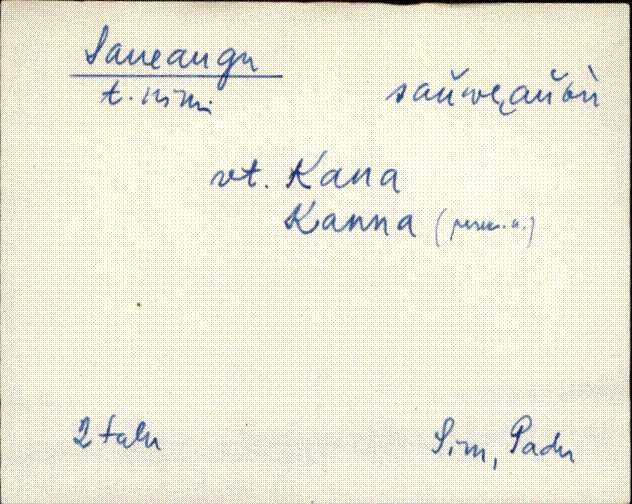 Saueaugu
t. nimi
saŭwe̮aŭᴳù
vt. Kana
Kanna (peren. n.)
2 talu
Sim, Padu